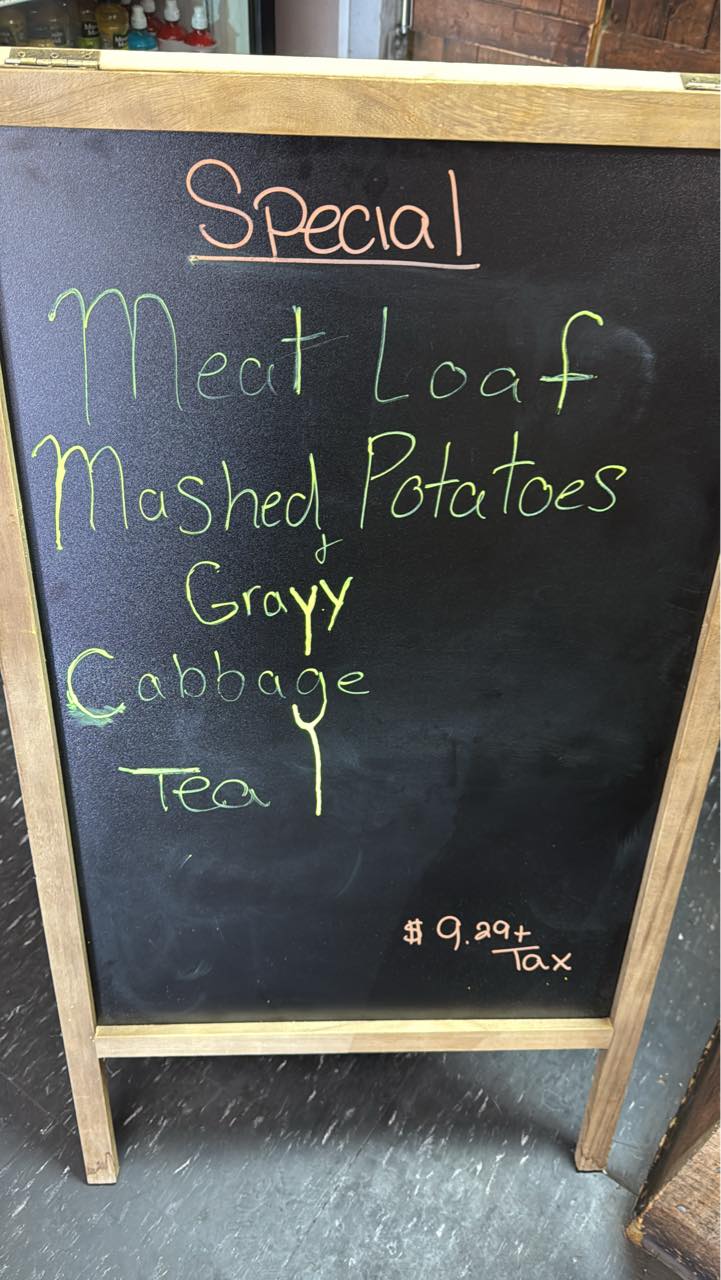 Special
Meat Loaf
Mashed Potatoes
&
Gravy
Cabbage
Tea
$ 9.29+
Tax